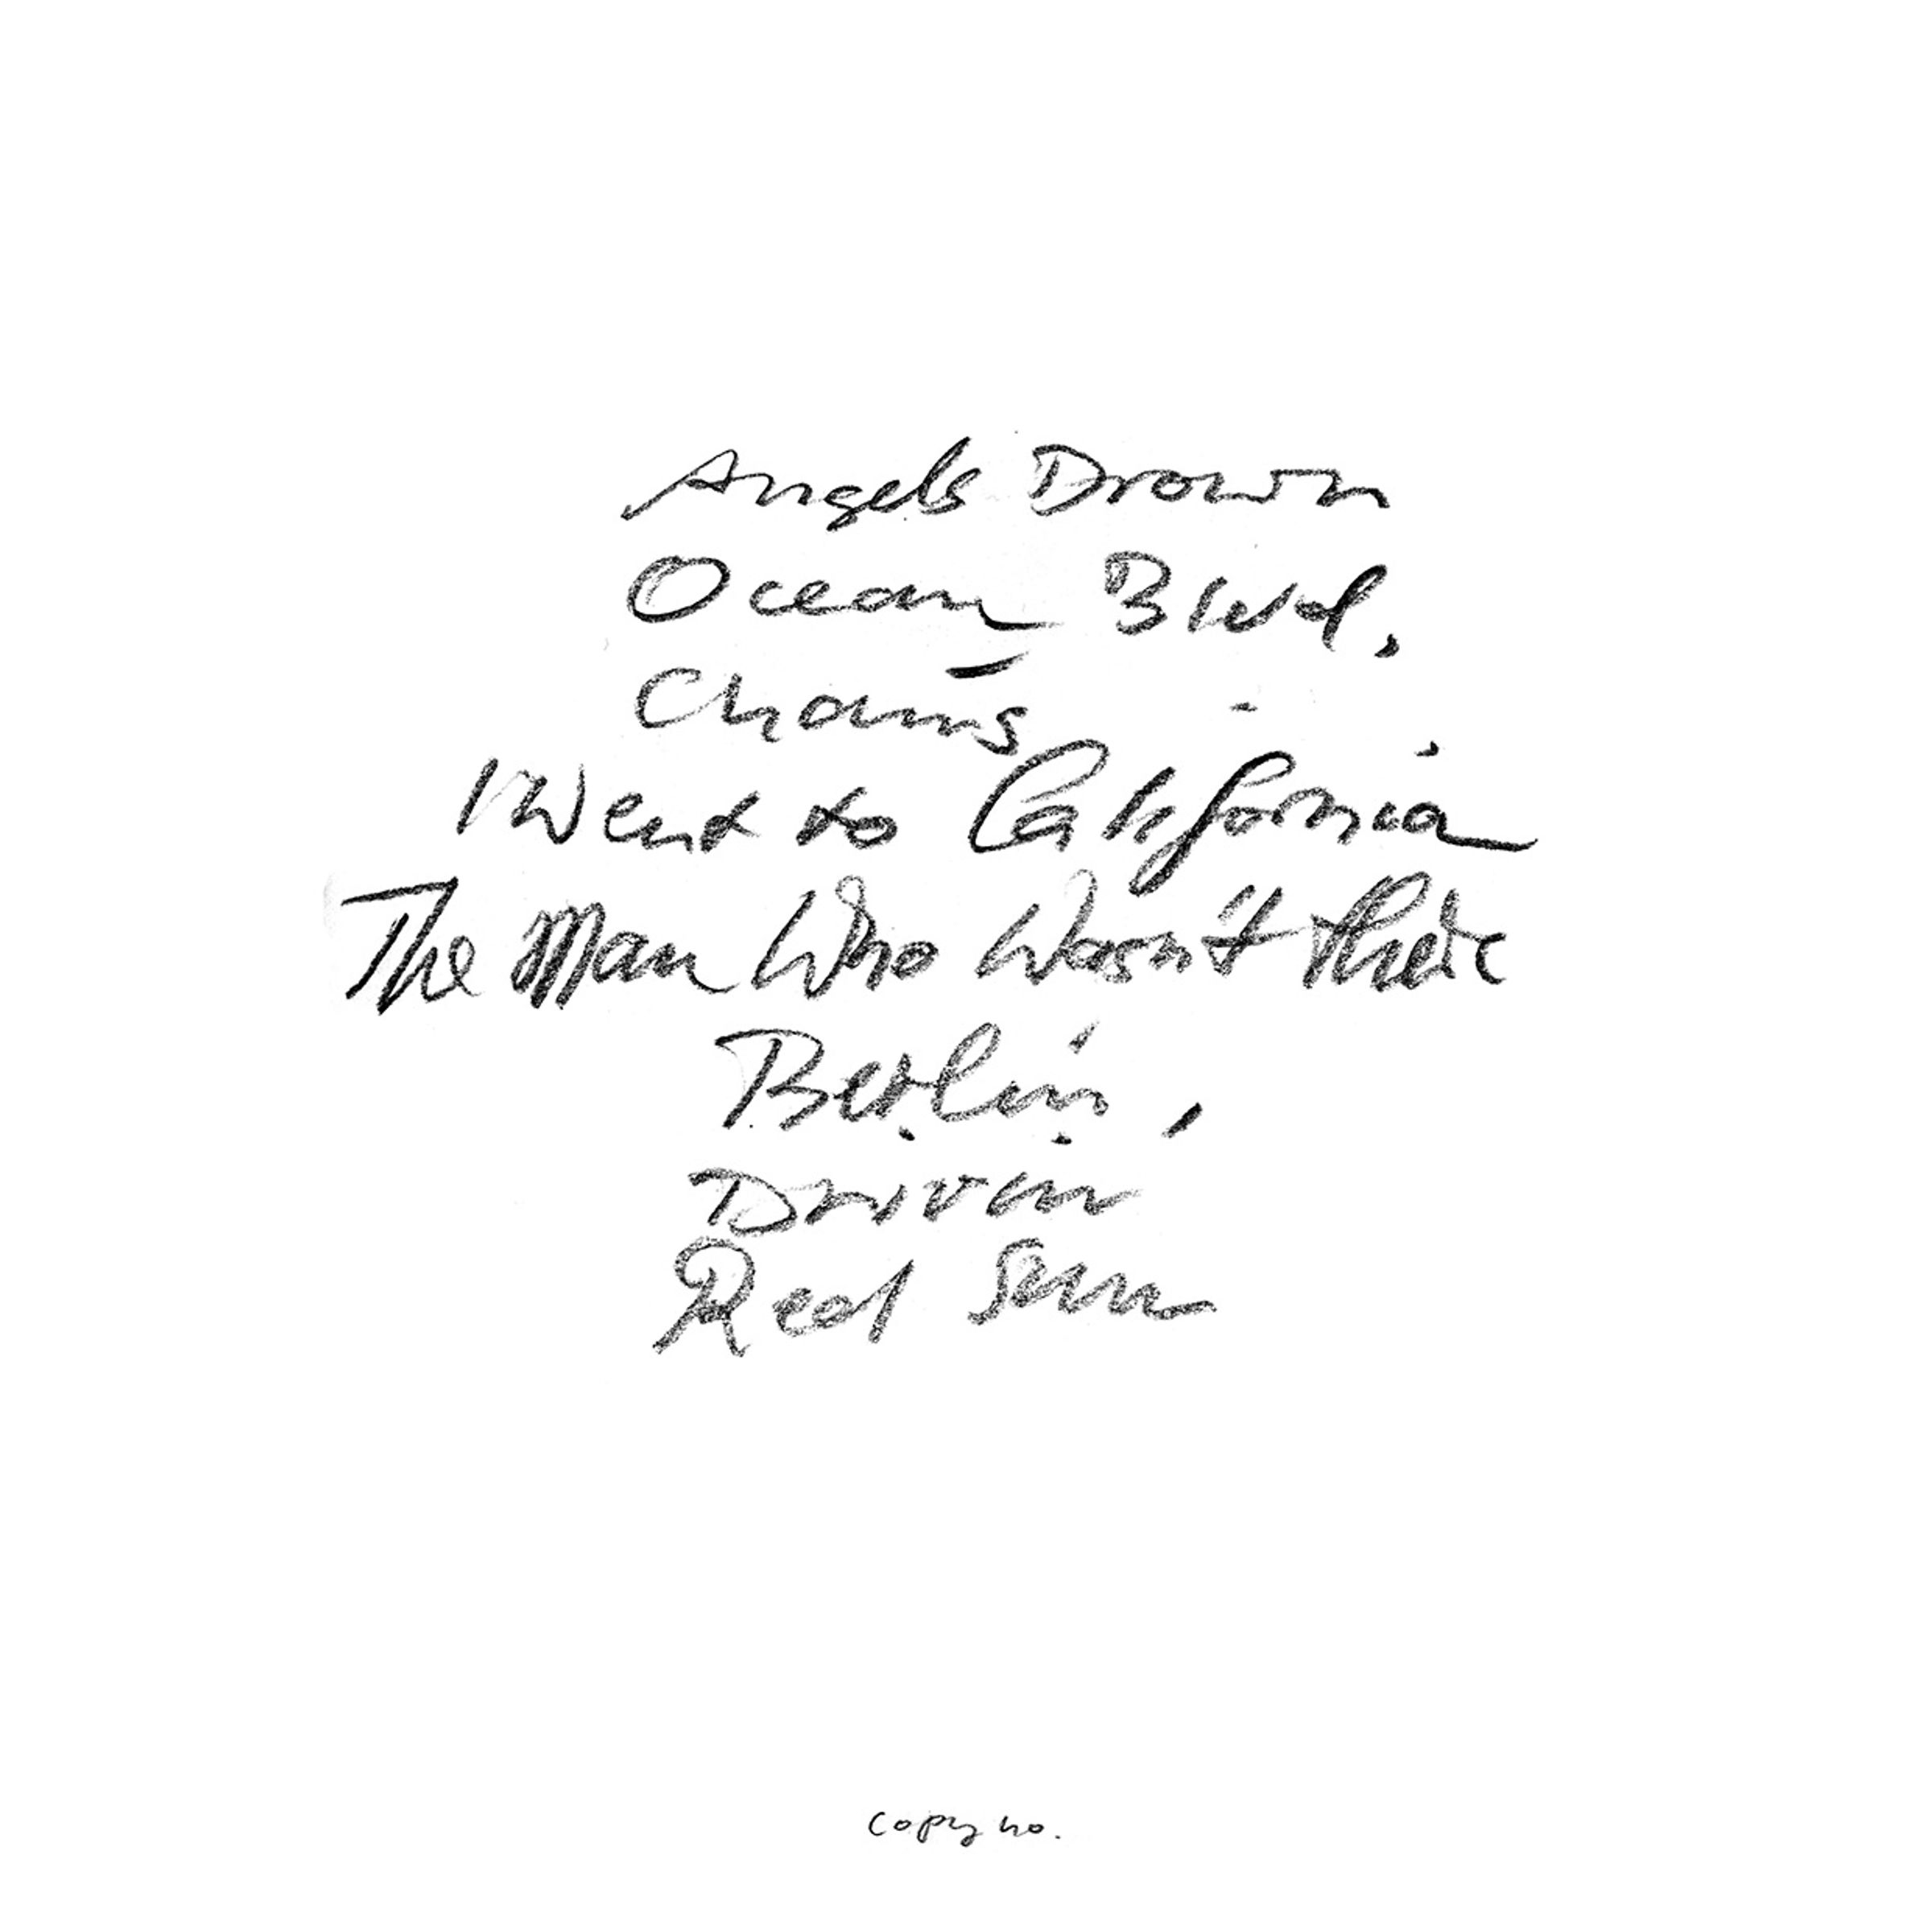 Angels Drown
Ocean Blvd.
Chains
I Went to California
The Man Who Wasn't there
Berlin
Drivin
Red Sun
copy no.